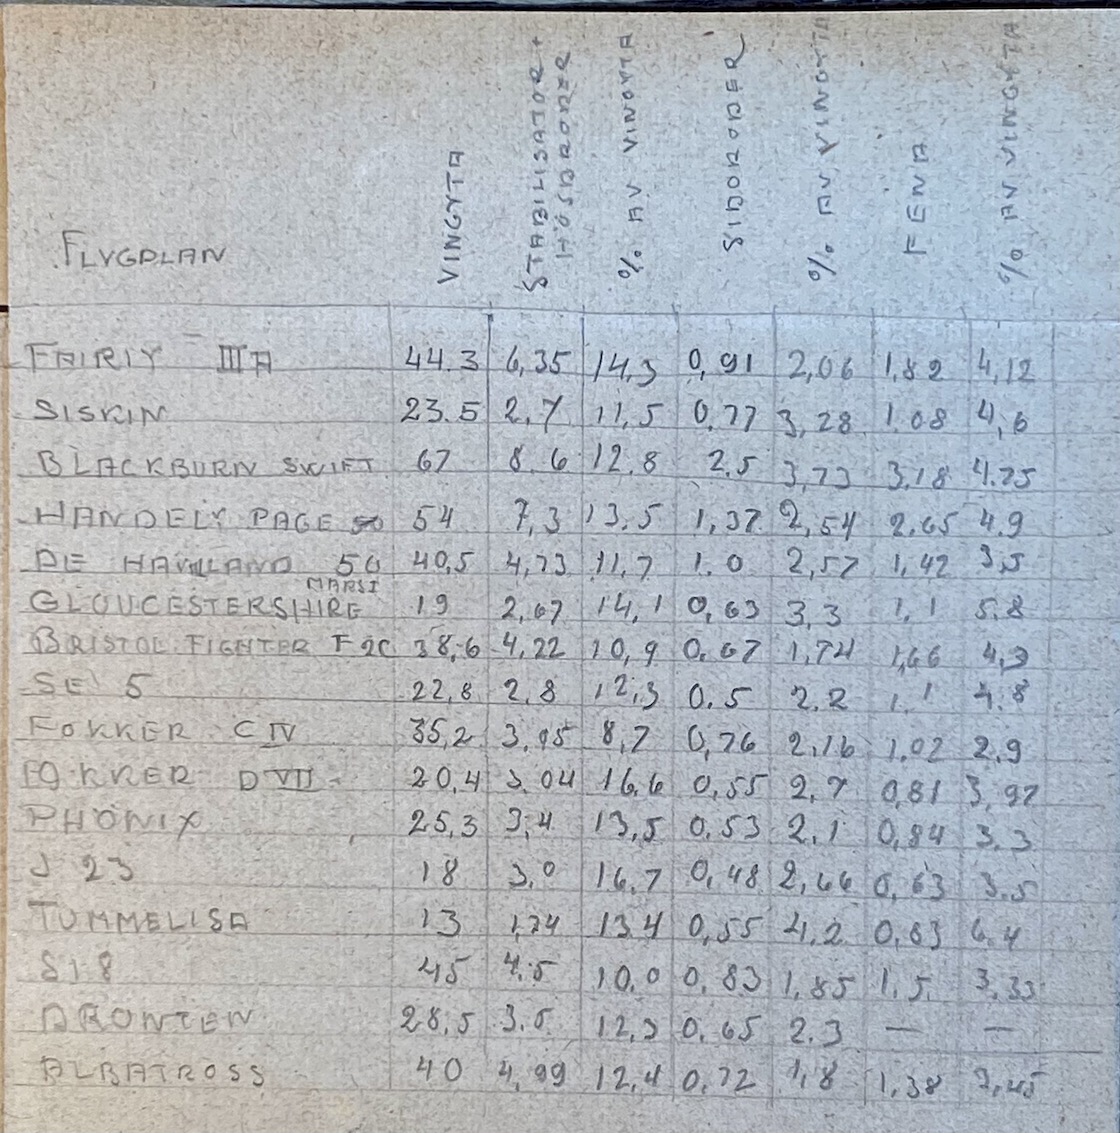 FLYGPLAN VINGYTA STABILISATOR + HÖJDRODER % AV VINGYTA SIDORODER % AV VINGYTA FENA % AV VINGYTA
FAIRIY IIIA 44.3 6,35 14,3 0,91 2,06 1,82 4,12
SISKIN 23.5 2,7 11,5 0,77 3,28 1.08 4,6
BLACKBURN SWIFT 67 8.6 12,8 2.5 3,73 3,18 4.75
HANDELY PAGE 54 7,3 13,5 1,37 2,54 2,65 4.9
DE HAVILLAND 50 40,5 4,73 11,7 1.0 2,57 1,42 3,5
MARSI
GLOUCESTERSHIRE 19 2,67 14,1 0,63 3,3 1,1 5.8
BRISTOL FIGHTER F2C 38,6 4,22 10,9 0,67 1,74 1,66 4,3
SE 5 22,8 2,8 12,3 0.5 2.2 1,1 4.8
FOKKER C IV 35,2 3,05 8,7 0,76 2,16 1,02 2,9
FOKKER D VII 20,4 3,04 16,6 0,55 2,7 0,81 3,97
PHÖNIX 25,3 3,4 13,5 0,53 2,1 0,84 3,3
J 23 18 3,0 16,7 0,48 2,66 0,63 3.5
TUMMELISA 13 1,74 13,4 0,55 4,2 0,83 6.4
S18 45 4.5 10,0 0,83 1,85 1,5 3,33
DRONTEN 28,5 3.5 12,3 0,65 2.3 — —
ALBATROSS 40 4,99 12,4 0,72 1,8 1,38 3,45